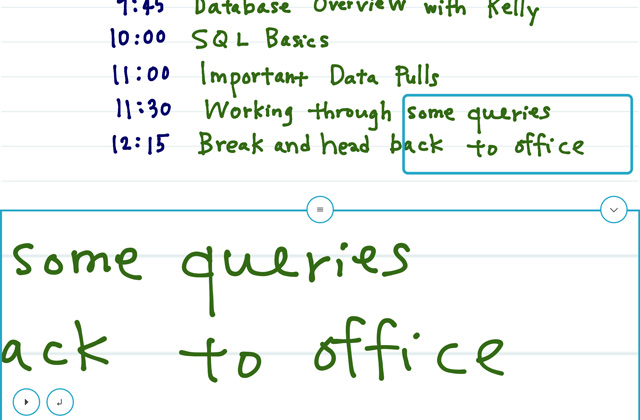 9:45 Database Overview with Kelly
10:00 SQL Basics
11:00 Important Data Pulls
11:30 Working through some queries
12:15 Break and head back to office
some queries
ack to office